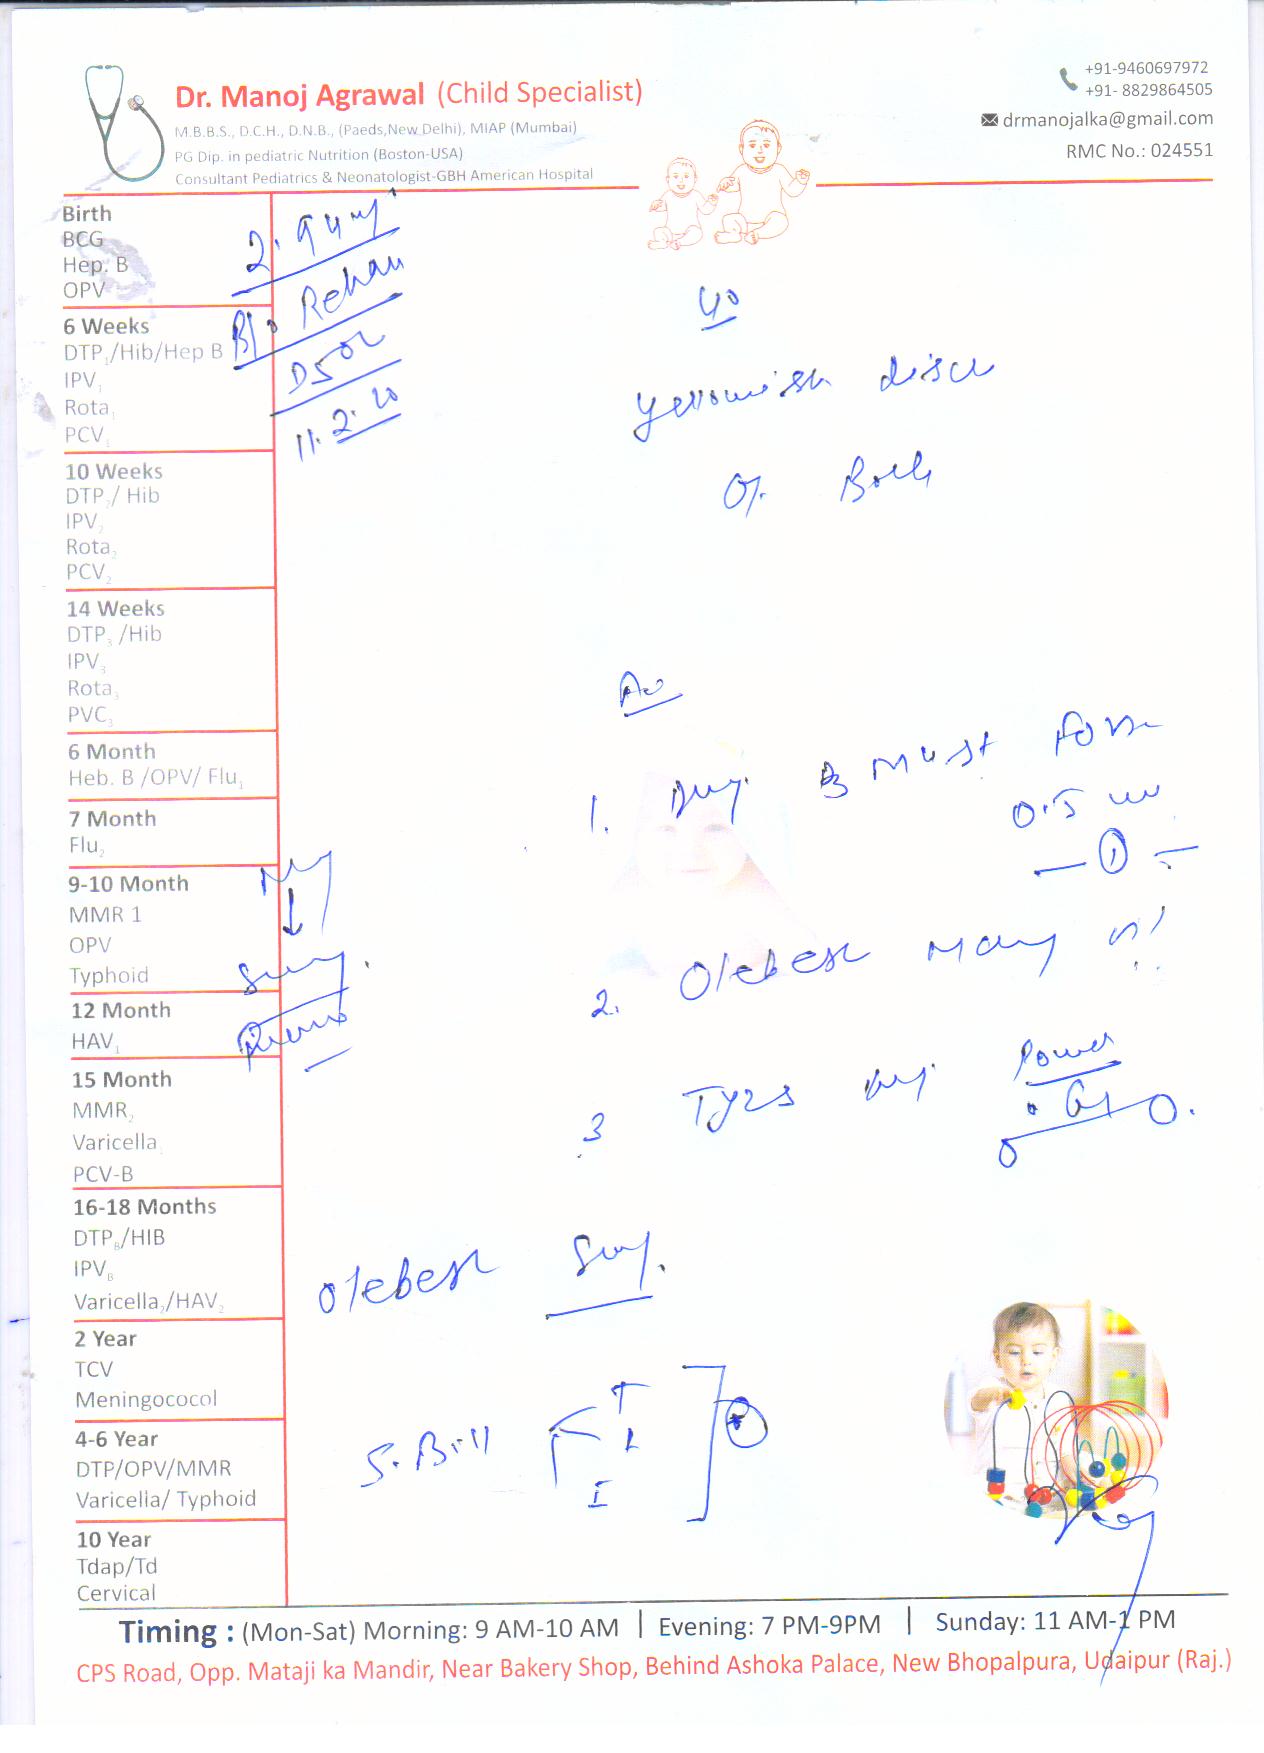 Dr. Manoj Agrawal (Child Specialist)
M.B.B.S., D.C.H., D.N.B., (Paeds,New Delhi), MIAP (Mumbai)
PG Dip. in pediatric Nutrition (Boston-USA)
Consultant Pediatrics & Neonatologist-GBH American Hospital
+91-9460697972
+91- 8829864505
drmanojalka@gmail.com
RMC No.: 024551
Birth
BCG
Hep. B
OPV
6 Weeks
DTP1/Hib/Hep B
IPV1
Rota1
PCV1
10 Weeks
DTP2/ Hib
IPV2
Rota2
PCV2
14 Weeks
DTP3 /Hib
IPV3
Rota3
PVC3
6 Month
Heb. B /OPV/ Flu1
7 Month
Flu2
9-10 Month
MMR 1
OPV
Typhoid
12 Month
HAV1
15 Month
MMR2
Varicella
PCV-B
16-18 Months
DTPB/HIB
IPVB
Varicella2/HAV2
2 Year
TCV
Meningococol
4-6 Year
DTP/OPV/MMR
Varicella/ Typhoid
10 Year
Tdap/Td
Cervical
B/o Rehan
11.2.20
Yellowish disc
Both
1. must
0.5
2. Olebest
3
Power
Olebest
S. Bill
T
I
Timing : (Mon-Sat) Morning: 9 AM-10 AM | Evening: 7 PM-9PM | Sunday: 11 AM-1 PM
CPS Road, Opp. Mataji ka Mandir, Near Bakery Shop, Behind Ashoka Palace, New Bhopalpura, Udaipur (Raj.)